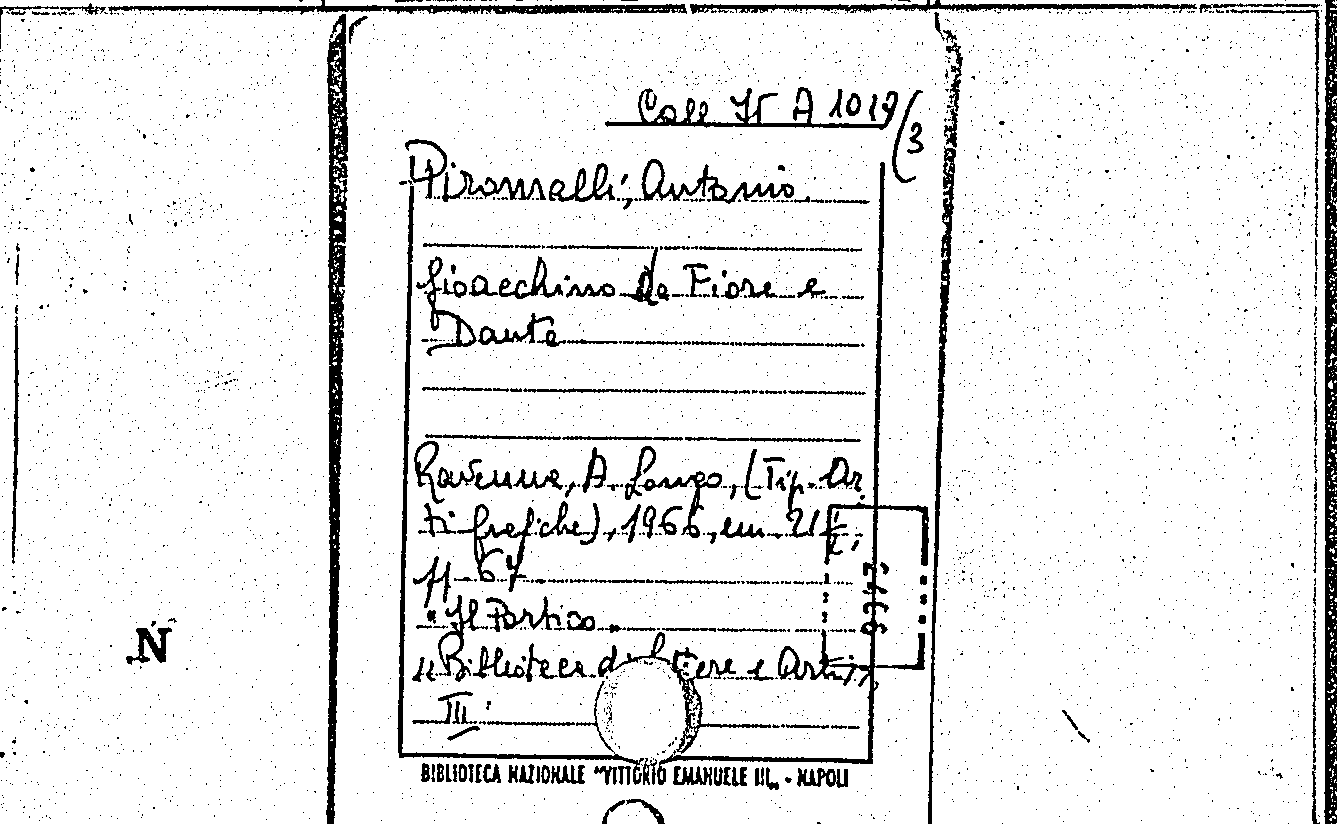 Coll It A 1019/3
Piromalli, Antonio.
Gioacchino da Fiore e
Dante
Ravenna, A. Longo, (Tip. Ar
ti grafiche), 1966, em. 21
pp. 67
"Il Portico„
"Biblioteca di Lettere e Arti",
III
N
BIBLIOTECA NAZIONALE "VITTORIO EMANUELE III„ - NAPOLI